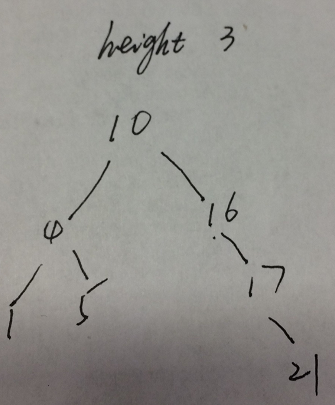 height 3
10
4 16
1 5 17
21